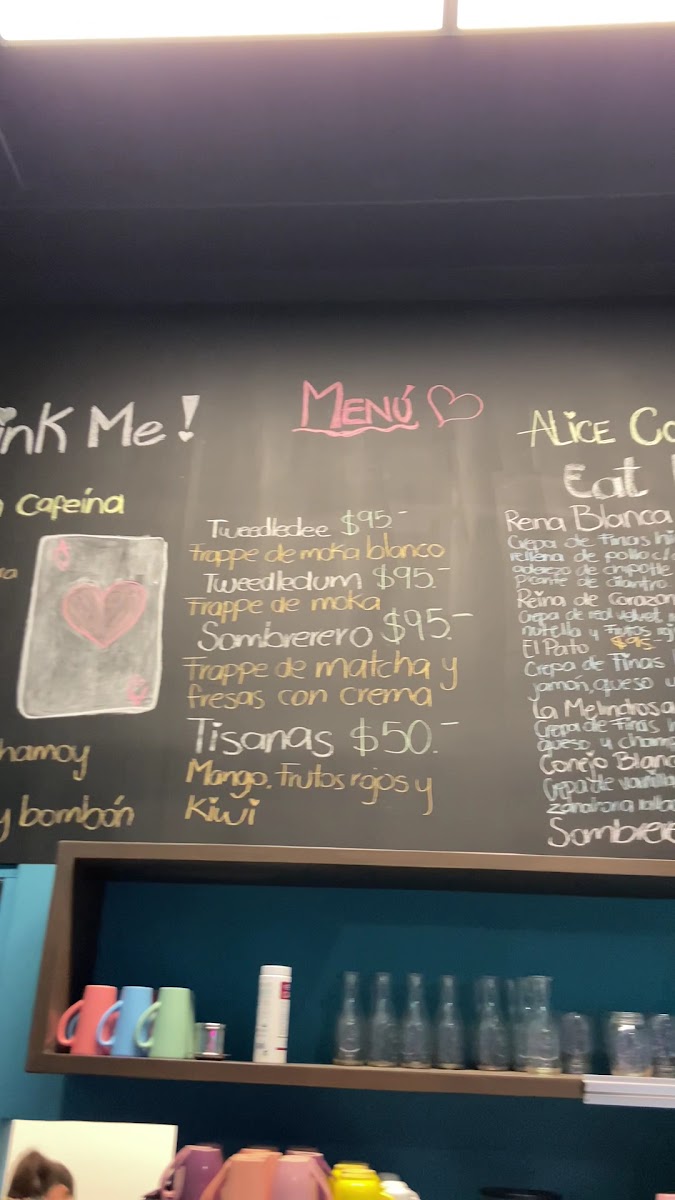 Me!
Cafeína
hamoy
y bombón
MENÚ
Tweedledee $95.-
Frappe de moka blanco
Tweedledum $95.-
Frappe de moka
Sombrerero $95.-
Frappe de matcha y
fresas con crema
Tisanas $50.-
Mango, Frutos rojos y
Kiwi
ALICE Co
Eat
Reina Blanca
Crepa de Finas hi
rellena de pollo c/
aderezo de chipotle
picante de cilantro.
Reina de Corazon
Crepa de red velvet
nutella y Frutos roj
El Pato $95
Crepa de Finas
jamón, queso
La Melindrosa
Crepa de Finas
queso y champ
Conejo Blanc
Crepa de vainilla
zanahoria ralla
Sombrere